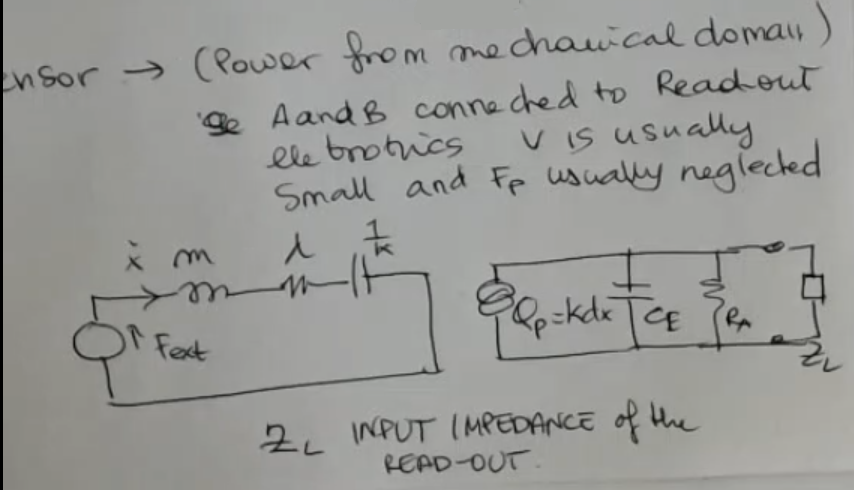 ensor → (Power from mechanical domain)
A and B connected to Readout
eletrotrics V is usually
small and Fp usually neglected
ẋ m λ 1/k
Fext
Qp=kdx CE RA
ZL
ZL INPUT IMPEDANCE of the
READ-OUT.